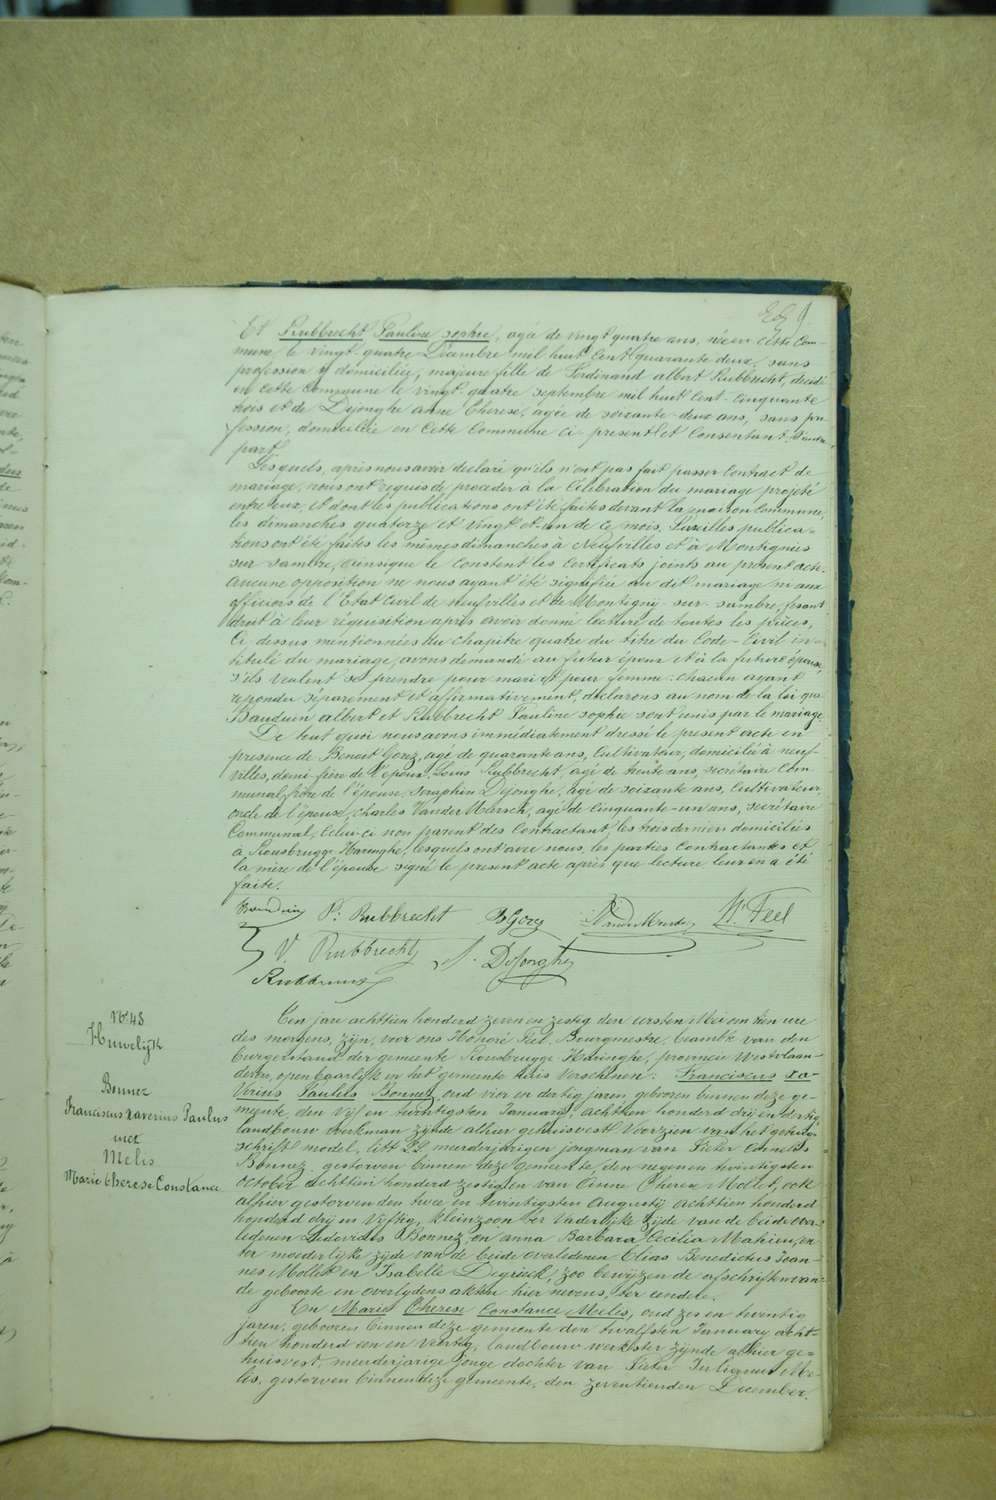 Et Rubbrecht Pauline sophie, agée de vingt quatre ans, née en cette Com-
mune, le vingt-quatre Décembre mil huit Cent quarante deux, sans
profession y domiciliée, majeure fille de Ferdinand albert Rubbrecht, décédé
en cette commune le vingt-quatre septembre mil huit cent cinquante
trois et de Dejonghe anne Therese, agée de soixante-deux ans, sans pro-
fession, domiciliée en Cette Commune Ci-present et Consentant, d'autre
part.
Lesquels, après nous avoir declaré qu'ils n'ont pas fait passer Contract de
mariage, nous ont requis de proceder à la Célébration du mariage projeté
entre eux, et dont les publications ont été faites devant la maison Commune,
les dimanches quatorze et vingt et un de ce mois, Pareilles publica-
tions ont été faites les mêmes dimanches à Neufvilles et à Montignies
sur sambre, ainsi que le Constent les Certificats joints au présent acte.
Aucune opposition ne nous ayant été signifiée au dit mariage ni aux
officiers de l'Etat Civil de neufvilles et de Montigny-sur-sambre, fesant
droit à leur réquisition après avoir donné lecture de toutes les pièces,
Ci dessus mentionnées du chapitre quatre du titre du Code-Civil in-
titulé du mariage, avons demandé au futur époux et à la future épouse,
s'ils veulent se prendre pour mari et pour femme: chacun ayant
repondu séparément et affirmativement, déclarons au nom de la loi que
Bauduin albert et Rubbrecht Pauline sophie sont unis par le mariage
De tout quoi nous avons immédiatement dressé le present acte en
presence de Benoit Gorez, agé de quarante ans, Cultivateur, domicilié à neuf-
villes, demi-frère de l'époux, Louis Rubbrecht, agé de trente ans, secrétaire Com-
munal, frère de l'épouse, Seraphin Dejonghe, agé de soixante ans, Cultivateur,
oncle de l'épouse, Charles Vander Mersch, agé de Cinquante-un ans, secrétaire
Communal, Celui-ci non parent des Contractant, les trois derniers domiciliés
à Rousbrugge Haringhe, lesquels ont avec nous, les parties Contractantes et
la mère de l'épouse signé le present acte après que lecture leur en a été
faite.
Bauduin P: Rubbrecht B Gorez H. Feel
V. Rubbrecht S. DeJonghe
Rubbrecht
N° 48
Huwelijk
Bonnez
Franciscus Xaverius Paulus
met
Melis
Marie Therese Constance
Een jare achttien honderd zeven en zestig den eersten Mei om tien ure
des morgens, zijn, voor ons Honoré Feel, Bourgmestre, beambte van den
burgerstand der gemeente Rousbrugge-Haringhe, provincie Westvlaan-
deren, openbaarlijk in het gemeente huis verschenen: Franciscus Xa-
verius Paulus Bonnez, oud vier en dertig jaren, geboren binnen deze ge-
meente, den vijf en twintigsten January, achttien honderd drij en dertig
landbouw werkman zijnde alhier gehuisvest Voorzien van het getuig-
schrift model, meerderjarigen jongman van Pieter Cornelis
Bonnez, gestorven binnen deze gemeente, den negenen twintigsten
October achttien honderd zestig en van Anne Therese Mollet, ook
alhier gestorven den twee en twintigsten Augustij achttien honderd
honderd drij en vijftig, kleinzoon ter vaderlijke zijde van de beide over-
ledenen Ludovicus Bonnez, en anna Barbara Cecilia Mahieu, en
ter moederlijke zijde van de beide overledenen Elias Benedictus Joan-
nes Mollet en Isabelle Degrieck, zoo bewijzen de afschriften van
de geboorte en overlijdens akten hier nevens, ter eendere.
En Marie Therese Constance Melis, oud zes en twintig
jaren, geboren binnen deze gemeente den twalfsten January acht-
tien honderd een en veertig, landbouw werkster zijnde alhier ge-
huisvest, meerderjarige jonge dochter van Pieter Me-
lis, gestorven binnen deze gemeente, den zeventienden December